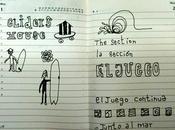 GLIDERS
HOUSE
The Section
la sección
EL JUEGO
el Juego continúa
Junto al mar